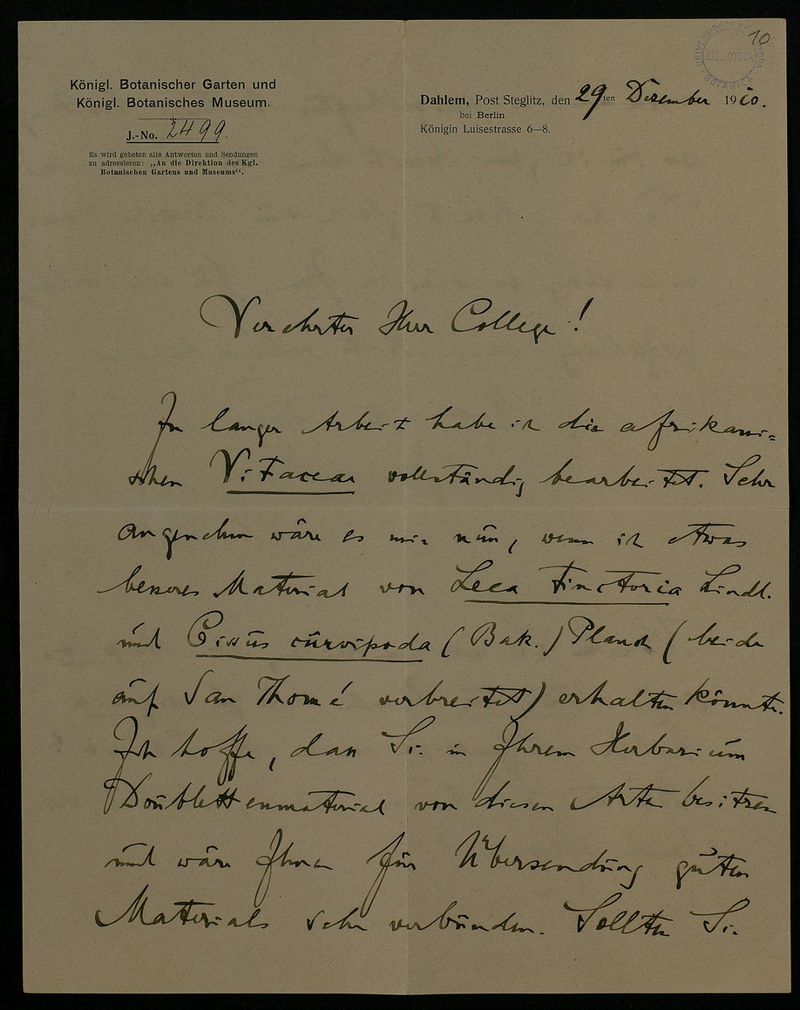 10
BIBLIOTECA
Königl. Botanischer Garten und
Königl. Botanisches Museum.
J.-No. 2499.
Es wird gebeten alle Antworten und Sendungen
zu adressieren: „An die Direktion des Kgl.
Botanischen Gartens und Museums“.
Dahlem, Post Steglitz, den 29ten Dezember 1910.
bei Berlin
Königin Luisestrasse 6—8.
Verehrter Herr College!
In langer Arbeit habe ich die afrikani=
schen Vitaceae vollständig bearbeitet. Sehr
angenehm wäre es mir nun, wenn ich etwas
besseres Material von Leea tinctoria Lindl.
und Cissus curvipoda (Bak.) Planch (beide
auf San Thomé verbreitet) erhalten könnte.
Ich hoffe, dass Sie in Ihrem Herbarium
Doublettenmaterial von diesen Arten besitzen
und wäre Ihnen für Übersendung guten
Materials sehr verbunden. Sollten Sie